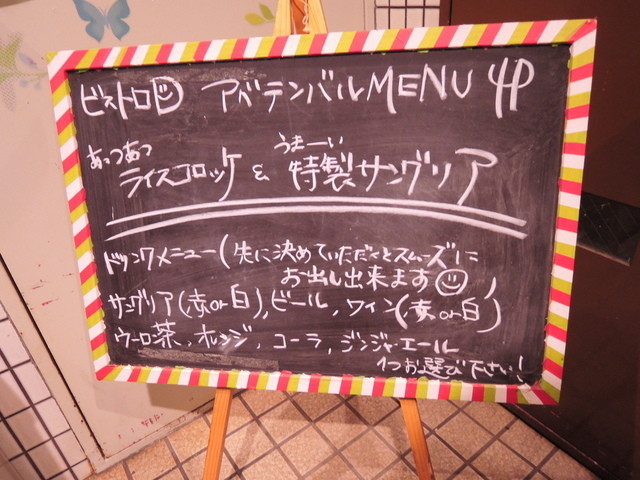 ビストロ アベテンバルMENU
あっつあつ うまーい
ライスコロッケ & 特製サングリア
ドリンクメニュー(先に決めていただくとスムーズに
お出し出来ます)
サングリア(赤or白),ビール,ワイン(赤or白)
ウーロン茶,オレンジ,コーラ,ジンジャーエール
1つお選び下さい!